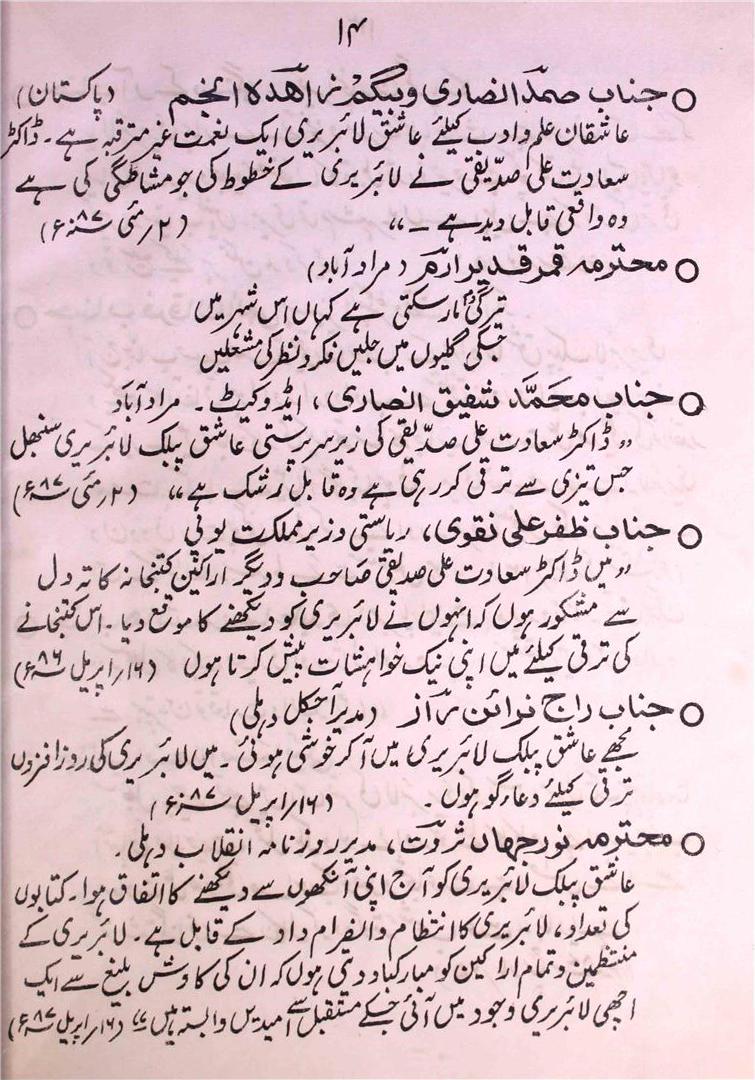 ۱۴
○ جناب صمد انصاری و بیگم زاھدہ انجم (پاکستان)
عاشقان علم وادب کیلئے عاشق لائبریری ایک نعمت غیر مترقبہ ہے۔ ڈاکٹر
سعادت علی صدیقی نے لائبریری کے خطوط کی جو مشاطگی کی ہے
وہ واقعی قابل دید ہے ۔،، (۲؍مئی ۸۷ء)
○ محترمہ قمر قدیر ارم (مرادآباد)
تیرگی مار سکتی ہے کہاں اس شہر میں
جسکی گلیوں میں جلیں فکر ونظر کی مشعلیں
○ جناب محمد شفیق انصاری، ایڈوکیٹ۔ مرادآباد
,, ڈاکٹر سعادت علی صدیقی کی زیر سرپرستی عاشق پبلک لائبریری سنبھل
جس تیزی سے ترقی کر رہی ہے وہ قابل رشک ہے،، (۲؍مئی ۸۷ء)
○ جناب ظفر علی نقوی، ریاستی وزیر مملکت یوپی
,, میں ڈاکٹر سعادت علی صدیقی صاحب ودیگر اراکین کتبخانہ کا تہ دل
سے مشکور ہوں کہ انہوں نے لائبریری کو دیکھنے کا موقع دیا۔ اس کتبخانے
کی ترقی کیلئے میں اپنی نیک خواہشات پیش کرتا ہوں (۱۶؍اپریل ۸۶ء)
○ جناب راج نرائن راز (مدیر آجکل دہلی)
مجھے عاشق پبلک لائبریری میں آکر خوشی ہوئی۔ میں لائبریری کی روز افزوں
ترقی کیلئے دعاگو ہوں۔ (۱۶؍اپریل ۸۷ء)
○ محترمہ نورجہاں ثروت، مدیر روزنامہ انقلاب دہلی۔
عاشق پبلک لائبریری کو آج اپنی آنکھوں سے دیکھنے کا اتفاق ہوا۔ کتابوں
کی تعداد، لائبریری کا انتظام وانصرام داد کے قابل ہے۔ لائبریری کے
منتظمین وتمام اراکین کو مبارکباد دیتی ہوں کہ ان کی کاوش بلیغ سے ایک
اچھی لائبریری وجود میں آئی جسکے مستقبل سے امیدیں وابستہ ہیں،، (۱۶؍اپریل ۸۷ء)